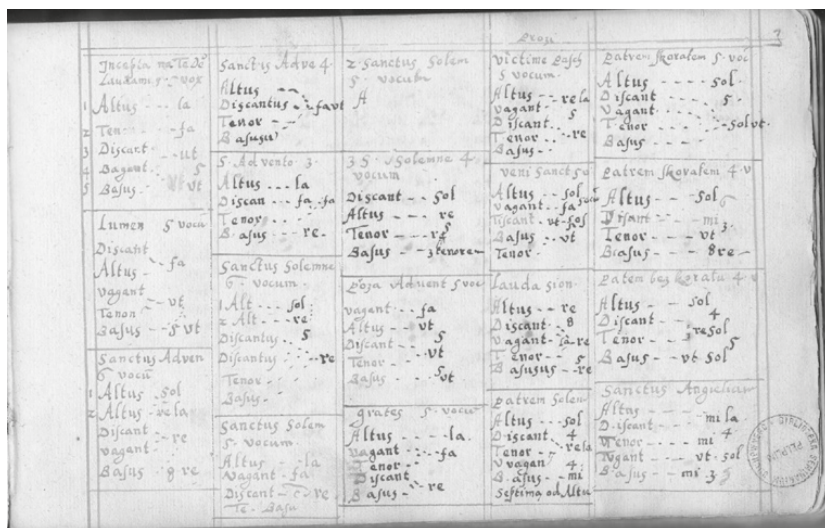 3
Incepta
Laudamus 5 vox
1 Altus - - - la
2 Ten - - - fa
3 Discant - - ut
4 Vagant - 5
5 Basus - - ut ut
Lumen 5 vocu
Discant
Altus - fa
Vagant
Tenor - - ut
Basus - - 5 ut
Sanctus Adven
6 vocu
1 Altus sol
2 Altus re la
Discant - - re
Vagant
Basus - 8 re
Sanctus Adve 4
Altus
Discantus - - fa ut
Tenor
Basus
S. Advento 3
Altus - - - la
Discan - - fa fa
Tenor
Basus - - - re
Sanctus Solemne
6 vocum
1 Alt - - - sol
2 Alt - - - re
Discantus - - 5
Discantus - - re
Tenor
Basus
Sanctus Solem
5 vocum
Altus - - la
Vagant - fa
Discant - - re
Te. Basu
2 Sanctus Solem
5 vocum
A
3 S. Solemne 4
vocum
Discant - - sol
Altus - - - re
Tenor - - re 5
Basus - - 3 tenore
Advent 5 voc
Vagant - - fa
Altus - - ut
Discant - - 5
Tenor - - ut
Basus - - 5 ut
grates 5 vocu
Altus - - - la
Vagant - - fa
Tenor
Discant
Basus - - re
Prosi
Victime Pasch
5 vocum
Altus - - re la
Vagant - 5
Discant
Tenor - - re
Basus
Veni Sanct 5
Altus - - sol
Vagant - fa
Discant - ut sol
Basus - - ut
Tenor
Lauda sion
Altus - - re
Discant - - 8
Vagant - la re
Tenor - - 5
Basus - - re
Patrem Solem
Altus - - sol
Discant 4
Tenor - re la
Vagan 4
Basus - - mi
Septima od Altu
Patrem skoralem 5 voc
Altus - - - - sol
Discant - - - 5
Vagant
Tenor - - - sol ut
Basus - - -
Patrem skoralem 4 v
Altus - - - sol
Discant - - - mi
Tenor - - - ut 3
Basus - - - 8 re
Patem bez koralu 4 v
Altus - - - sol
Discant - - 4
Tenor - - - re sol
Basus - - ut sol 5
Sanctus
Altus - - - - mi la
Discant - - - 4
Tenor - - - - mi
Vagant - - - ut sol
Basus - - - mi 3